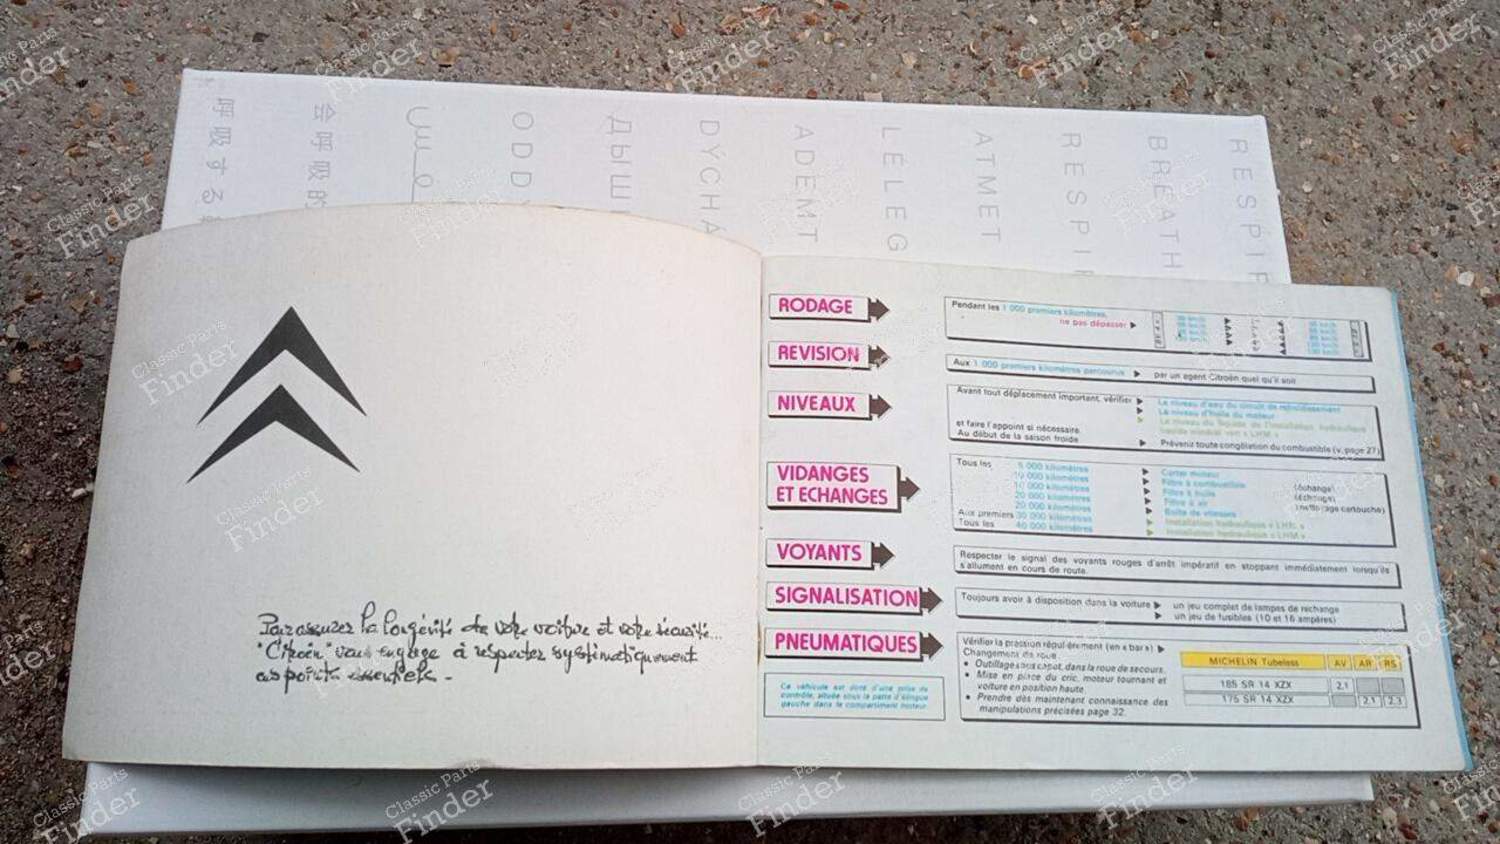 呼吸する
会呼吸的
ODD
ДЫШ
DÝCHA
ADEMT
LÉLEG
ATMET
RESPI
BREATH
RESPIR
Pour assurer la longévité de votre voiture et votre sécurité...
"Citroën" vous engage à respecter systématiquement
ces points essentiels -
RODAGE
Pendant les 1 000 premiers kilomètres,
ne pas dépasser
REVISION
Aux 1 000 premiers kilomètres parcourus par un agent Citroën quel qu'il soit
NIVEAUX
Avant tout déplacement important, vérifier
Le niveau d'eau du circuit de refroidissement
Le niveau d'huile du moteur
Le niveau du liquide de l'installation hydraulique
et faire l'appoint si nécessaire.
Au début de la saison froide Prévenir toute congélation du combustible (v. page 27)
VIDANGES
ET ECHANGES
Tous les 5 000 kilomètres Carter moteur
10 000 kilomètres Filtre à combustible (échange)
10 000 kilomètres Filtre à huile (échange)
20 000 kilomètres Filtre à air (nettoyage cartouche)
20 000 kilomètres Boîte de vitesses
Aux premiers 30 000 kilomètres Installation hydraulique « LHM »
Tous les 40 000 kilomètres Installation hydraulique « LHM »
VOYANTS
Respecter le signal des voyants rouges d'arrêt impératif en stoppant immédiatement lorsqu'ils
s'allument en cours de route.
SIGNALISATION
Toujours avoir à disposition dans la voiture un jeu complet de lampes de rechange
un jeu de fusibles (10 et 16 ampères)
PNEUMATIQUES
Vérifier la pression régulièrement (en « bars »)
Changement de roue.
• Outillage sous capot, dans la roue de secours.
• Mise en place du cric, moteur tournant et
voiture en position haute.
• Prendre dès maintenant connaissance des
manipulations précisées page 32.
MICHELIN Tubeless AV AR RS
185 SR 14 XZX 2,1
175 SR 14 XZX 2,1 2,3
Ce véhicule est doté d'une prise de
contrôle, située sous la patte d'élingue
gauche dans le compartiment moteur.
Classic Parts
Finder